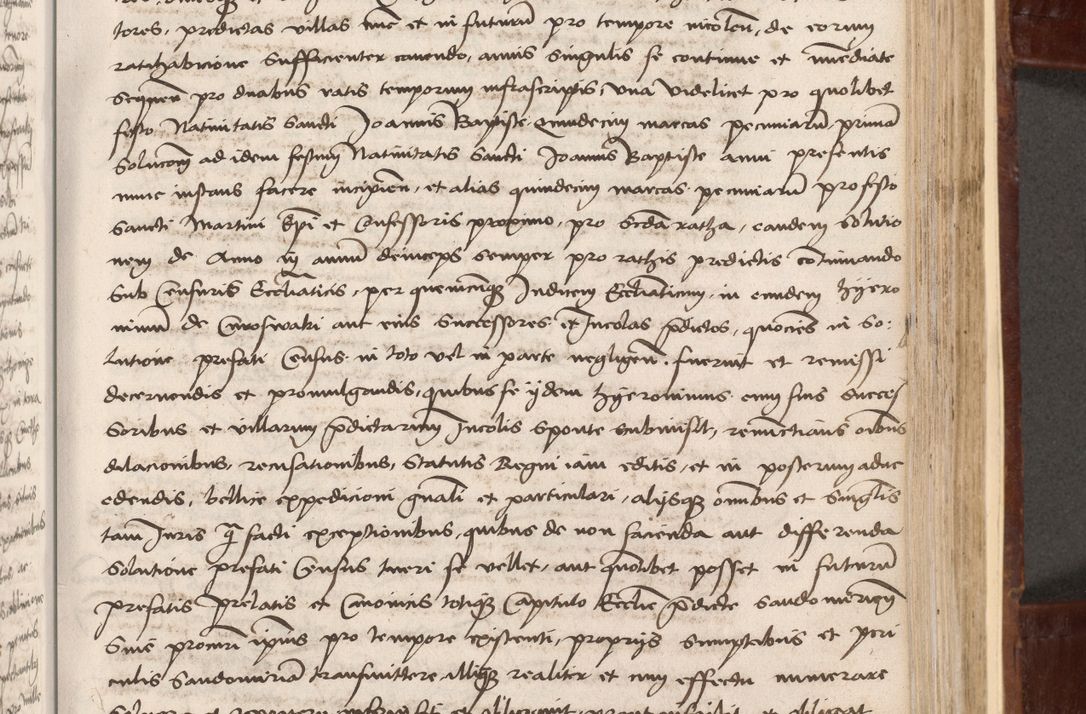 tores, predictas villas nunc et in futurum pro tempore incolen, de eorum
ratihabicione sufficienter cavendo, annis singulis se continue et immediate
sequen pro duabus ratis temporum infrascriptis, una videlicet pro quolibet
festo Nativitatis Sancti Joannis Baptiste quindecim marcas pecuniarum, primam
solucionem ad idem festum Nativitatis Sancti Joannis Baptiste anni presentis
nunc instans facere incipien, et alias quindecim marcas pecuniarum pro festo
Sancti Martini Epi et Confessoris proximo, pro Scda ratha, eandem solutio
nem de Anno in annum deinceps semper pro rathis predictis continuando
Sub Censuris Ecclesiasticis, per quemcunque Judicem Ecclesiasticum, in eundem Hyero
nimum de aut eius Successores et Incolas pdictos, quociens in So:
lutione prefati Census in toto vel in parte negligen fuerint et remissi
decernendis et promulgandis, quibus se ijdem Hyeronimus cum suis Succes
soribus et villarum pdictarum Incolis sponte submisit, renunctians oibus
dilacionibus, recusationibus, Statutis Regni iam editis, et in posterum aduc
edendis, bellice expedicioni gnali et particulari, alijsque omnibus et singlis
tam Juris q facti exceptionibus, quibus de non facienda aut differenda
Solutione prefati Census tueri se vellet, aut quolibet posset in futurum
prefatis prelatis et Canonicis totique Capitulo Ecclie pdicte Sandomirien
Sive procuri ipsius pro tempore existenti, proprijs sumptibus et peri
culis Sandomiriam transmittere, illisque realiter et cum effectu numerare
et